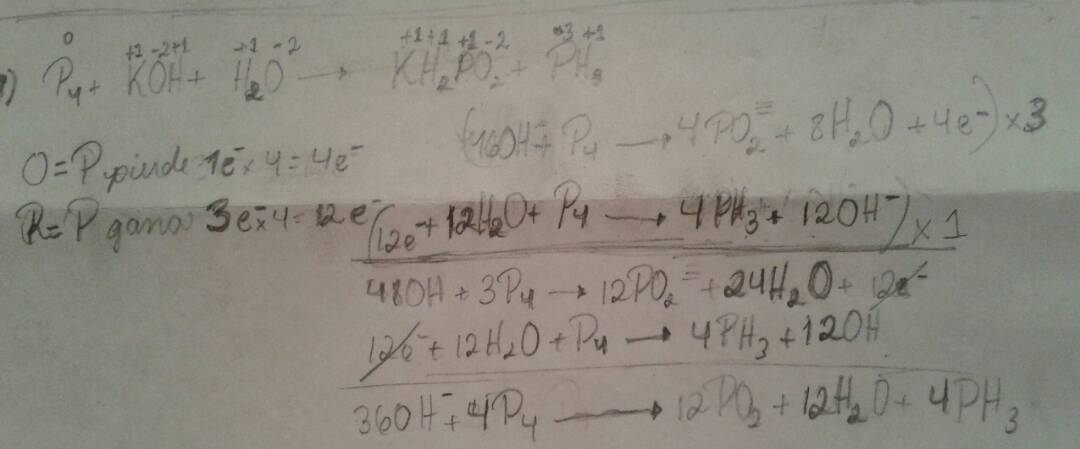 0
+1 -2+1 +1 -2 +1+1 +1-2 -3 +1
1) P₄ + KOH + H₂O → KH₂PO₂ + PH₃
(16OH⁻ + P₄ → 4PO₂≡ + 8H₂O + 4e⁻) x 3
O = P pierde 1e⁻ x 4 = 4e⁻
R = P gana 3e⁻ x 4 = 12e⁻ (12e⁻ + 12H₂O + P₄ → 4PH₃ + 12OH⁻) x 1
48OH + 3P₄ → 12PO₂⁼ + 24H₂O + 12e⁻
12e⁻ + 12H₂O + P₄ → 4PH₃ + 12OH
36OH⁻ + 4P₄ → 12PO₂ + 12H₂O + 4PH₃